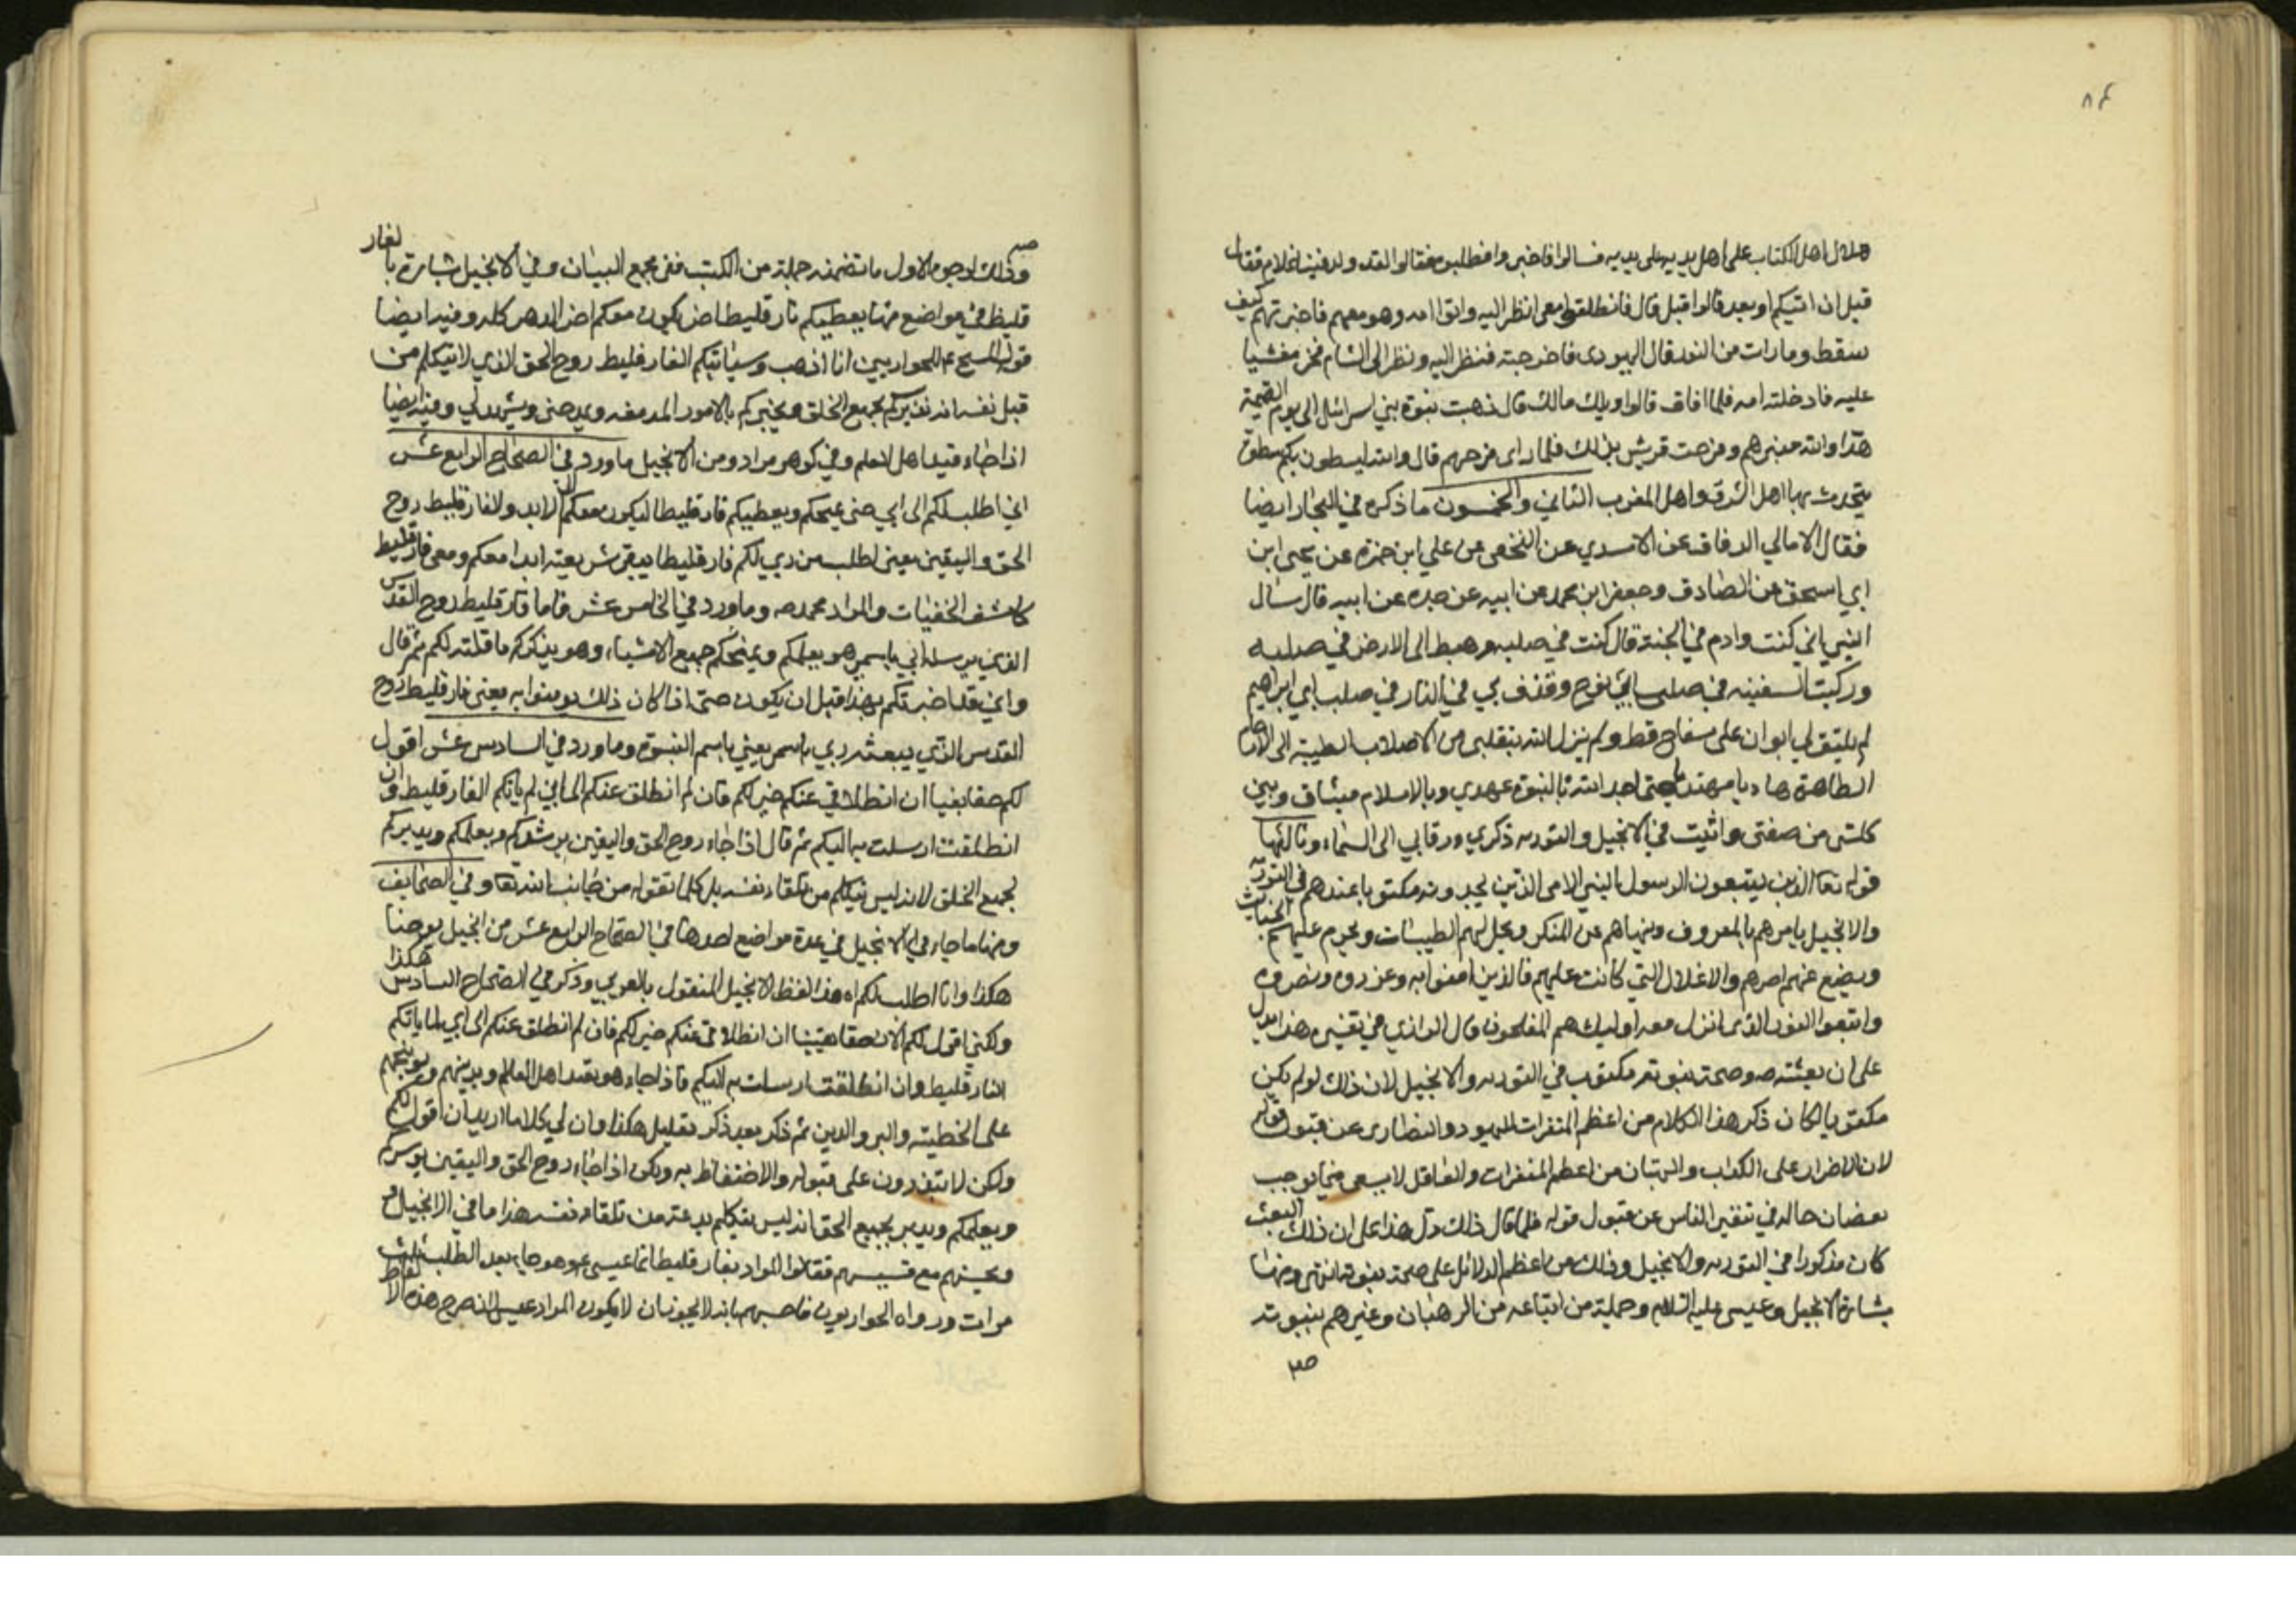 ٨٤
هلاك اهل الكتاب على اهل يديه على يديه فسالوا فاخبروا فطلبوه فقالوا لقد ولد فينا غلام فقال
قبل ان اتيكم او بعد قالوا قبل قال فانطلقوا معي انظر اليه واتوا امه وهو معهم فاخبرتهم كيف
سقط وما رات من النور قال اليهودى فاخرجته فنظر اليه ونظر الى الشام فخر مغشيا
عليه فادخلته امه فلما افاق قالوا ويلك مالك قال ذهبت نبوة بني اسرائيل الى يوم القيمة
هذا والله مبيرهم وفرحت قريش بذلك فلما راى فرحهم قال والله ليسطون بكم سطوة
يتحدث بها اهل الشرق واهل المغرب الثاني والخمسون ما ذكره في البحار ايضا
فقال الامالي الدقاق عن الاسدي عن النخعي عن علي ابن حمزة عن يحيى ابن
ابي اسحق عن الصادق وجعفر ابن محمد عن ابيه عن جده عن ابيه قال سئال
النبي اني كنت وادم في الجنة قال كنت في صلبه وهبط الى الارض في صلبه
وركبت السفينه في صلب ابي نوح وقذف بي في النار في صلب ابي ابراهيم
لم يلتق لي ابوان على سفاح قط ولم يزل الله ينقلبى من الاصلاب الطيبة الى الارحام
الطاهرة هاديا مهتديا حتى اخذ الله بالنبوة عهدي وبالاسلام ميثاق وبين
كلشى من صفتى واثبت في الانجيل والتوريه ذكري ورقابي الى السماء وثالثها
قوله تعا الذين يتبعون الرسول النبي الامى الذين يجدونه مكتوبا عندهم فى التوريه
والانجيل يامرهم بالمعروف وينهاهم عن المنكر ويحل لهم الطيبات ويحرم عليهم الخبائث
ويضع عنهم اصرهم والاغلال التي كانت عليهم فالذين امنوا به وعزروه ونصروه
واتبعوا النور الذى انزل معه اوليك هم المفلحون قال الرازي في تفسيره هذا يدل
على ان بعثته ص وصحة نبوته مكتوب في التوريه والانجيل لان ذلك لو لم يكن
مكتوبا لكان ذكر هذا الكلام من اعظم المنفرات لليهود والنصارى عن قبول قوله
لان الاصرار على الكذب والبهتان من اعظم المنفرات والعاقل لا يسعى فيما يوجب
نقصان حاله في تنفير الناس عن قبول قوله فلما قال ذلك دل هذا على ان ذلك البعث
كان مذكورا في التوريه والانجيل وذلك من اعظم الدلائل على صحة نبوته انتهى ومنها
بشارة الانجيل وعيسى عليه السلام وجملة من اتباعه من الرهبان وغيرهم بنبوته
ص
وذلك لوجوه الاول ما تضمنه جملة من الكتب ففى مجمع البيان وفي الانجيل بشارة بالفار
قليط في مواضع منها يعطيكم فارقليطا اخر يكون معكم اخر الدهر كله وفيه ايضا
قول المسيح ع للحواريين انا اذهب وسياتيكم الفارقليط روح الحق الذي لا يتكلم من
قبل نفسه انه نذيركم بجميع الخلق ويخبركم بالامور المزمعه ويمدحنى ويشهد لي وفيه ايضا
اذا جاء فيد اهل العلم وفي كوهر مراد ومن الانجيل ما ورد في الصحاح الرابع عشر
اني اطلب لكم الى ابي حتى يمنحكم ويعطيكم فارقليطا ليكون معكم الى الابد والفارقليط روح
الحق واليقين يعنى اطلب من ربي لكم فارقليطا يبقى شريعته ابدا معكم ومعى فارقليط
كاشف الخفيات والمراد محمد ص وما ورد في الخامس عشر فاما فارقليط روح القدس
الذي يرسله ابي باسمى هو يعلمكم ويمنحكم جميع الاشياء وهو يذكركم ما قلته لكم ثم قال
واني قد اخبرتكم بهذا قبل ان يكون حتى اذا كان ذلك يومنوا به يعنى فارقليط روح
القدس الذي يبعثه ربي باسمى يعني باسم النبوة وما ورد في السادس عشر اقول
لكم حقا يقينا ان انطلاقي عنكم خير لكم فان لم انطلق عنكم الى ابي لم ياتكم الفارقليط وان
انطلقت ارسلت به اليكم ثم قال اذا جاء روح الحق واليقين يرشدكم ويعلمكم ويدبركم
لجميع الخلق لانه ليس يتكلم من تلقاء نفسه بل كلما تقوله من جانب الله تعا وفي الصحايف
ومنها ما جاء في الانجيل في عدة مواضع احدها في الصحاح الرابع عشر من انجيل يوحنا
هكذا وانا اطلب لكم اه هذا لفظ الانجيل المنقول بالعربي وذكر في الصحاح السادس هكذا
ولكني اقول لكم الان حقا يقينا ان انطلاقي عنكم خير لكم فان لم انطلق عنكم الى ابي لما ياتكم
الفارقليط وان انطلقت ارسلت به اليكم فاذا جاء هو يفيد اهل العالم ويدينهم ويوبخهم
على الخطيئه والبر والدين ثم ذكر بعد ذكر بقليل هكذا وان لي كلاما اريد ان اقول لكم
ولكن لا تقدرون على قبوله والاحتفاظ به ولكن اذا جاء روح الحق واليقين يرشدكم
ويعلمكم ويدبر بجميع الحق انه ليس يتكلم بدعة من تلقاء نفسه هذا ما في الانجيل
وبحثهم مع قسيسهم فقالوا المراد بفارقليط انما عيسى ع وهو جاء بعد الطلب ثلث
مرات ورواه الحواريون فاجبهم بانه لا يجوز ان لا يكون المراد عيسى لانه صرح هذه الالفاظ